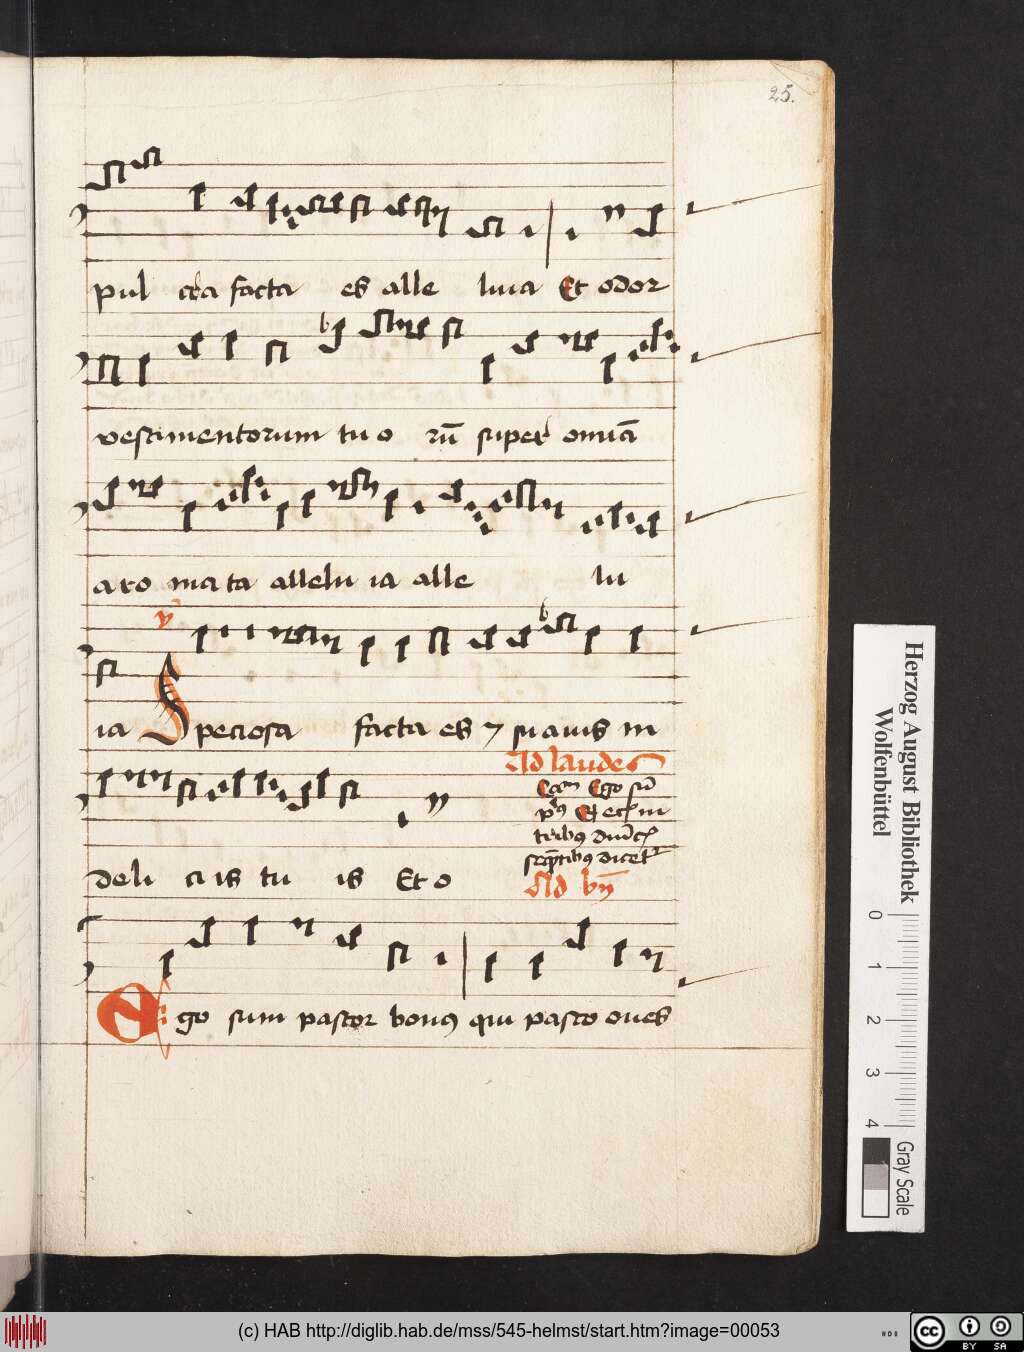 25.
pul cra facta es alle luia Et odor
vestimentorum tuo rū super omīa
aro mata allelu ia alle lu
ia Speciosa facta es ⁊ suauis in
Ad laudes
Ego sū
deli ciis tu is Et o
Ad bn̄
Ego sum pastor bonꝰ qui pasco oues
Herzog August Bibliothek
Wolfenbüttel
0 1 2 3 4
Gray Scale
(c) HAB http://diglib.hab.de/mss/545-helmst/start.htm?image=00053
cc BY SA